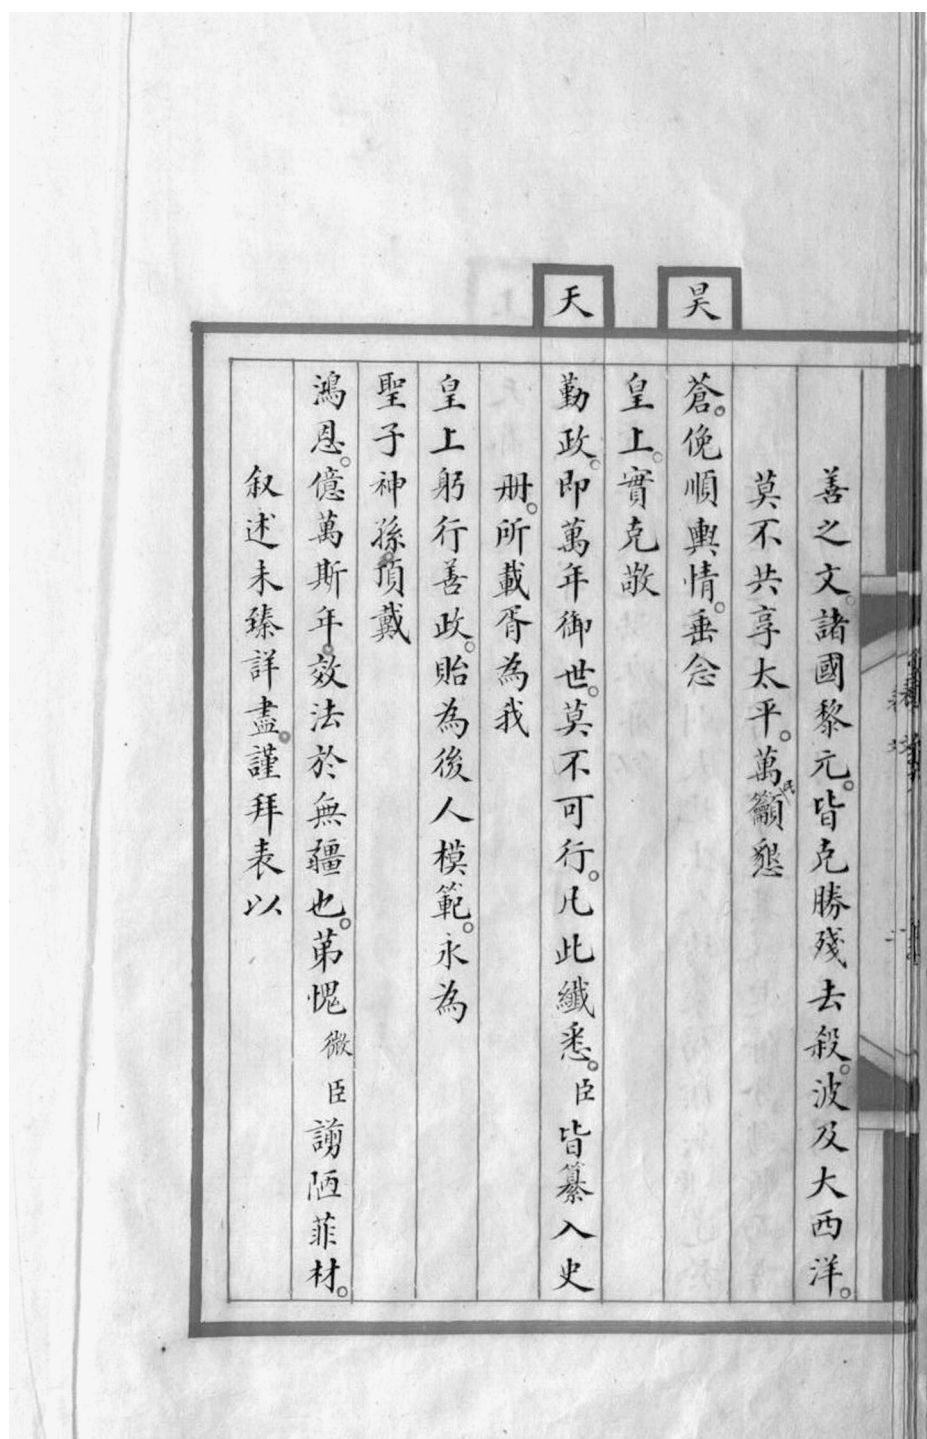 善之文。諸國黎元。皆克勝殘去殺。波及大西洋。
莫不共享太平。萬籲懇
昊蒼。俛順輿情。垂念
皇上。實克敬
天勤政。即萬年御世。莫不可行。凡此纖悉。臣皆纂入史
册。所載胥為我
皇上躬行善政。貽為後人模範。永為
聖子神孫。頂戴
鴻恩。億萬斯年。效法於無疆也。苐愧微臣謭陋菲材。
叙述未臻詳盡。謹拜表以